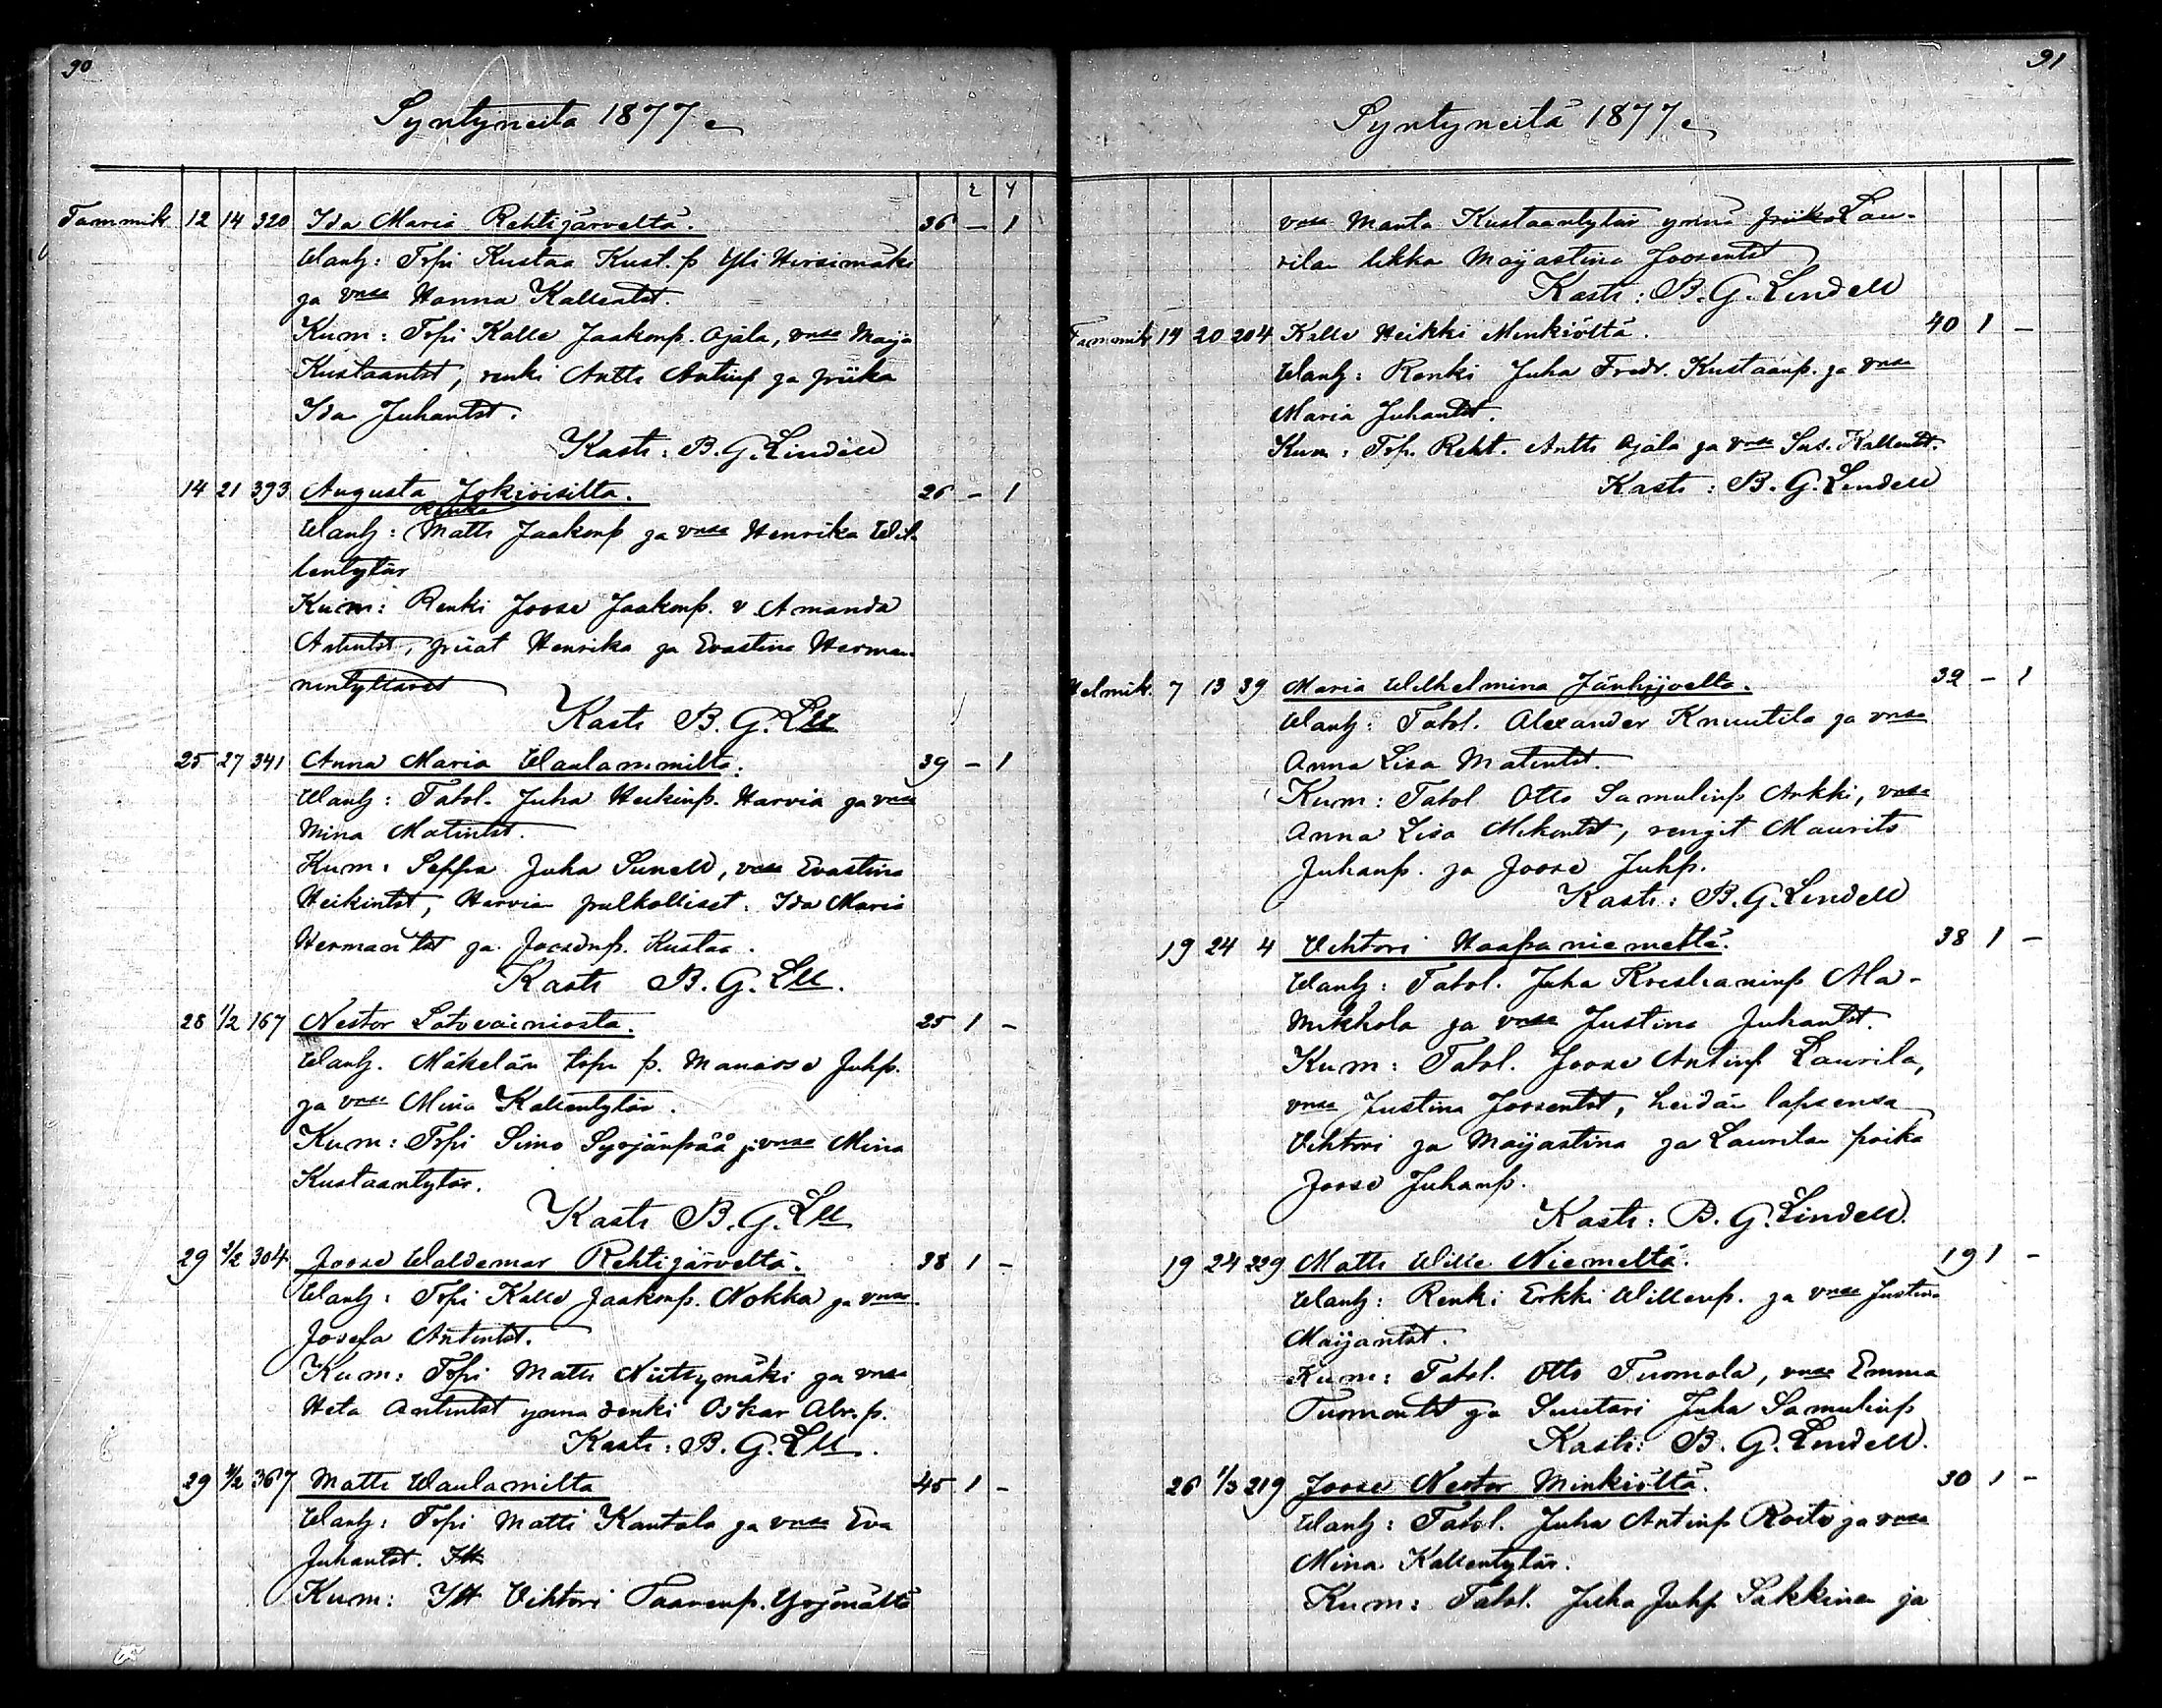 90
Syntyneitä 1877
r y
Tammik 12 14 320 Ida Maria Rehtijärveltä. 36 – 1
Wanh: Torp. Kustaa Kust. p Yli Hirsimäki
ja vmsa Hanna Kallentst.
Kum: Torp. Kalle Jaakonp. Ojala, vmsa Maija
Kustaantst, renki Antti Antinp ja piika
Ida Juhantst.
Kasti: B. G. Lindell
14 21 393 Augusta Jokioisilta. 26 – 1
Renki
Wanh: Matti Jaakonp ja vmsa Henrika Wil-
lentytär
Kum: Renki Joose Jaakonp. v Amanda
Antintst, piiat Henrika ja Evastina Herman-
nintyttäret
Kasti B. G. Lll
25 27 341 Anna Maria Waulammilta. 39 – 1
Wanh: Tatol. Juha Heikinp. Harvia ja vmsa
Mina Matintst.
Kum: Seppä Juha Sunell, vmsa Evastina
Heikintst, Harvian pulkolliset. Ida Maria
Hermantst ja Joosenp. Kustaa.
Kasti B. G. Lll.
28 1/2 167 Nestor Latovainiosta. 25 1 –
Wanh. Mäkelän torp p. Manasse Juhp.
ja vmsa Mina Kallentytär.
Kum: Torp. Simo Syrjänpää ja vmsa Mina
Kustaantytär.
Kasti B. G. Lll
29 2/2 304 Joose Waldemar Rehtijärveltä. 38 1 –
Wanh: Torp. Kalle Jaakonp. Nokka ja vmsa
Josefa Antintst.
Kum: Torp. Matti Niittymäki ja vmsa
Heta Antintst ynnä renki Oskar Abr. p.
Kasti: B. G. Lll.
29 4/2 367 Matti Waulamilta 45 1 –
Wanh: Torp. Matti Kantala ja vmsa Eva
Juhantst. Itt
Kum: Itt Vihtori Taavenp. Yrjönältä
91
Syntyneitä 1877
vmsa Manta Kustaantytär ynnä piika Lau-
rilan likka Maijastina Joosentst
Kasti: B. G. Lindell
Tammik 19 20 204 Kalle Heikki Minkiöltä. 40 1 –
Wanh: Renki Juha Fredr. Kustaanp. ja vmsa
Maria Juhantst.
Kum: Torp. Reht. Antti Ojala ja vmsa Sus. Kallentst.
Kasti: B. G. Lindell
Helmik. 7 13 39 Maria Wilhelmina Jänhijoelta. 32 – 1
Wanh: Tatol. Alexander Knuutila ja vmsa
Anna Lisa Matintst.
Kum: Tatol Otto Samulinp Arkki, vmsa
Anna Lisa Mikontst, rengit Maurits
Juhanp. ja Joose Juhp.
Kasti: B. G. Lindell
19 24 4 Vihtori Haapaniemeltä. 38 1 –
Wanh: Tatol. Juha Kristianinp Ala-
Mikkola ja vmsa Justina Juhantst.
Kum: Tatol. Joose Antinp Laurila,
vmsa Justina Joosentst, heidän lapsensa
Vihtori ja Maijastina ja Laurilan poika
Joose Juhanp.
Kasti: B. G. Lindell.
19 24 229 Matti Wille Niemeltä. 19 1 –
Wanh: Renki Erkki Willenp. ja vmsa Justina
Maijantst.
Kum: Tatol. Otto Tuomola, vmsa Emma
Tuomontst ja Suutari Juha Samulinp
Kasti: B. G. Lindell.
26 1/3 219 Joose Nestor Minkiöltä. 30 1 –
Wanh: Tatol. Juha Antinp Roito ja vmsa
Mina Kallentytär.
Kum: Tatol. Juha Juhp Sakkinen ja